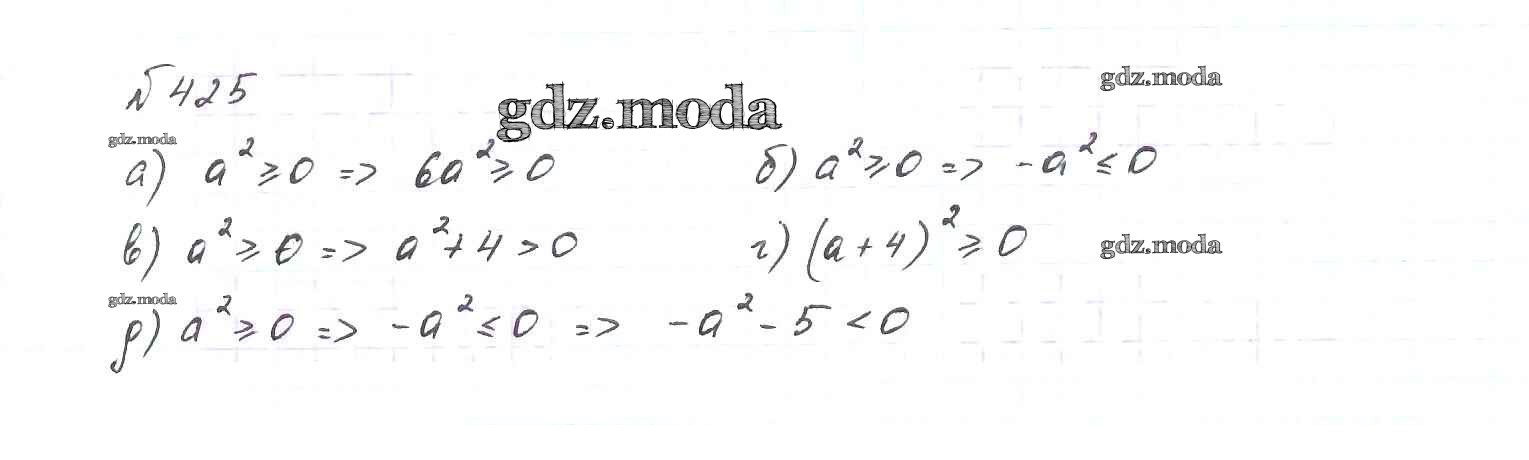 № 425
gdz.moda
gdz.moda
gdz.moda
а) a² ≥ 0 => 6a² ≥ 0 б) a² ≥ 0 => -a² ≤ 0
в) a² ≥ 0 => a² + 4 > 0 г) (a + 4)² ≥ 0
gdz.moda
gdz.moda
д) a² ≥ 0 => -a² ≤ 0 => -a² - 5 < 0